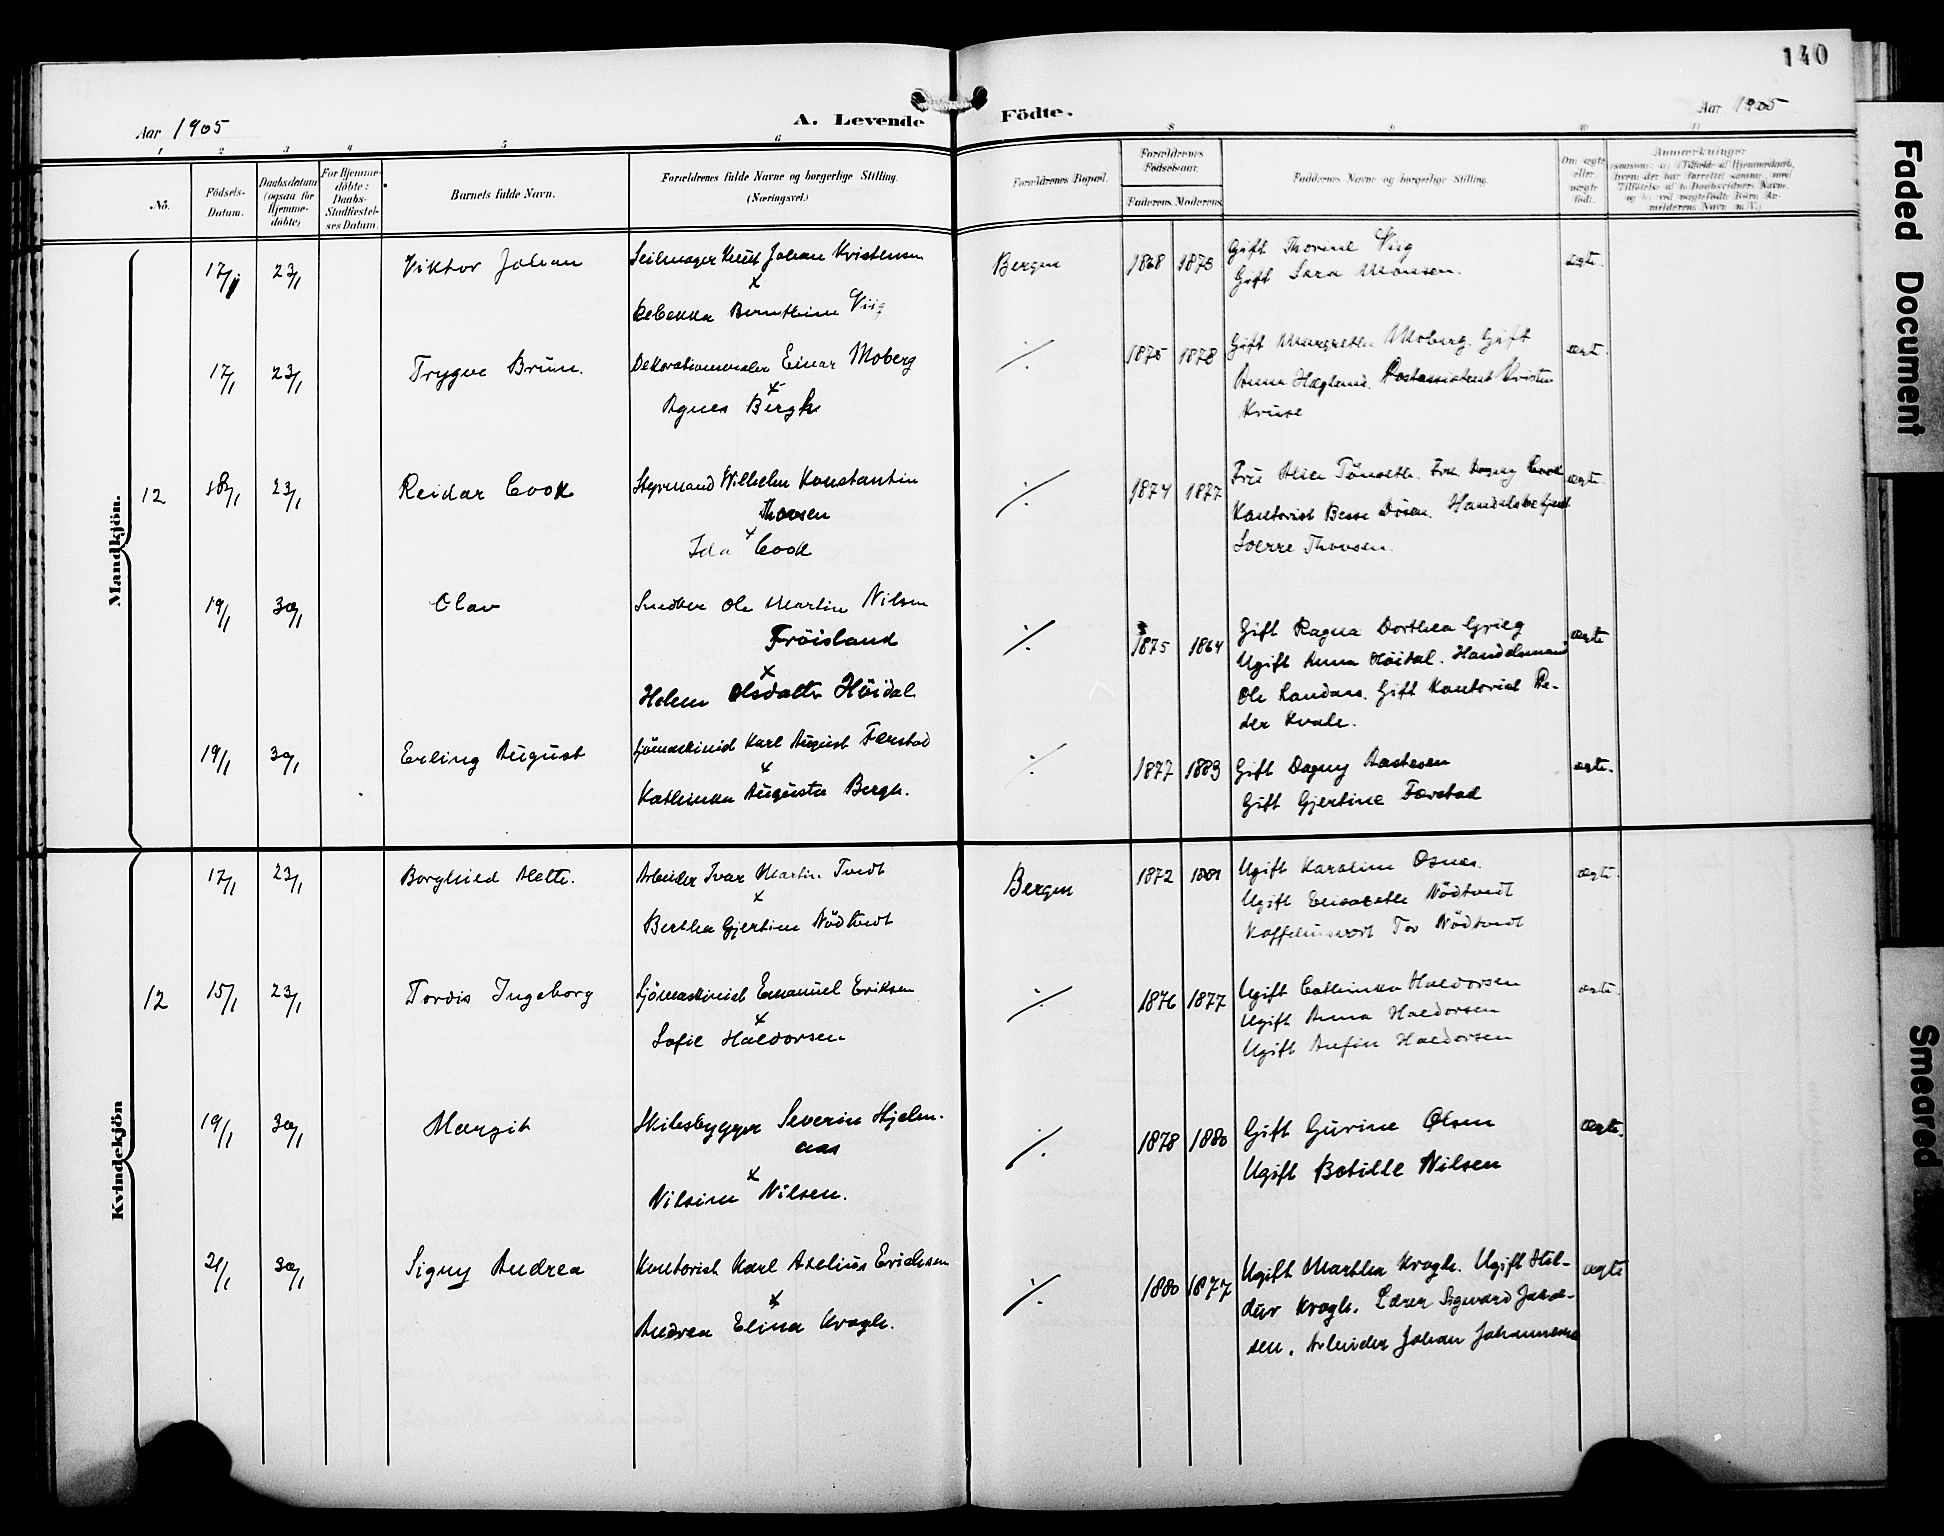 140
Aar 1905
A. Levende Födte.
Aar 1905
1 2 3 4 5 6 8 9 10 11
No.
Födsels-Datum.
Daabsdatum (ogsaa for Hjemme-döbte)
For Hjemme-döbte: Daabs-Stadfæstel-ses Datum.
Barnets fulde Navn.
Forældrenes fulde Navne og borgerlige Stilling.
(Næringsvei.)
Forældrenes Bopæl.
Forældrenes Födselsaar.
Faderens. Moderens.
Faddernes Navne og borgerlige Stilling.
Om ægte eller uægte födt.
Anmærkninger
Mandkjön.
17/1 23/1 Viktor Johan Seilmager Knut Johan Kristensen Bergen 1868 1873 Gift Thorine Viig ægte.
x Gift Sara Monsen.
Rebekka Berntine Viig
17/1 23/1 Trygve Brun. Dekorationsmaler Einar Moberg ·/. 1875 1878 Gift Margrethe Moberg. Gift ægte.
x Anna Hæglund. Postassistent Kristen
Agnes Bergh Kruse
12 18/1 23/1 Reidar Cook Styrmand Wilhelm Konstantin ·/. 1874 1877 Fru Alice Tönseth. Frk. Dagny Cook ægte.
Thowsen Kontorist Besse Dösen. Handelsbetjent
x Sverre Thowsen.
Ida Cook
19/1 30/1 Olav Snedker Ole Martin Nilsen ·/. 1875 1864 Gift Ragna Dorthea Grieg ægte
Fröisland Ugift Anna Höidal. Handelsmand
x Ole Landaas. Gift Kontorist Pe-
Helene Olsdatter Höidal der Kvale.
19/1 30/1 Erling August Sjömaskinist Karl August Færstad ·/. 1877 1883 Gift Dagny Aastesen ægte.
x Gift Gjertine Færstad
Kathinka Augusta Bergh.
Kvindekjön
17/1 23/1 Borghild Alette. Arbeider Ivar Martin Tvedt Bergen 1872 1881 Ugift Karoline Osnes. ægte.
x Ugift Elisabeth Nödtvedt
Bertha Gjertine Nödtvedt Kaffehusvært Tor Nödtvedt
12 15/1 23/1 Tordis Ingeborg Sjömaskinist Emanuel Eriksen ·/. 1876 1877 Ugift Cathinka Haldorsen ægte.
x Ugift Anna Haldorsen
Sofie Haldorsen Ugift Anfin Haldorsen
19/1 30/1 Margit Skibsbygger Severin Hjelm- ·/. 1878 1880 Gift Gurine Olsen ægte.
aas Ugift Botille Nilsen
x
Nilsine Nilsen.
21/1 30/1 Signy Andrea Kontorist Karl Axelius Erichsen ·/. 1880 1877 Ugift Martha Kragh. Ugift Hil- ægte
x dur Kragh. Lærer Sigward Jakob-
Andrea Elina Kragh. sen. Arbeider Johan Johannesen
Faded Document
Smeared